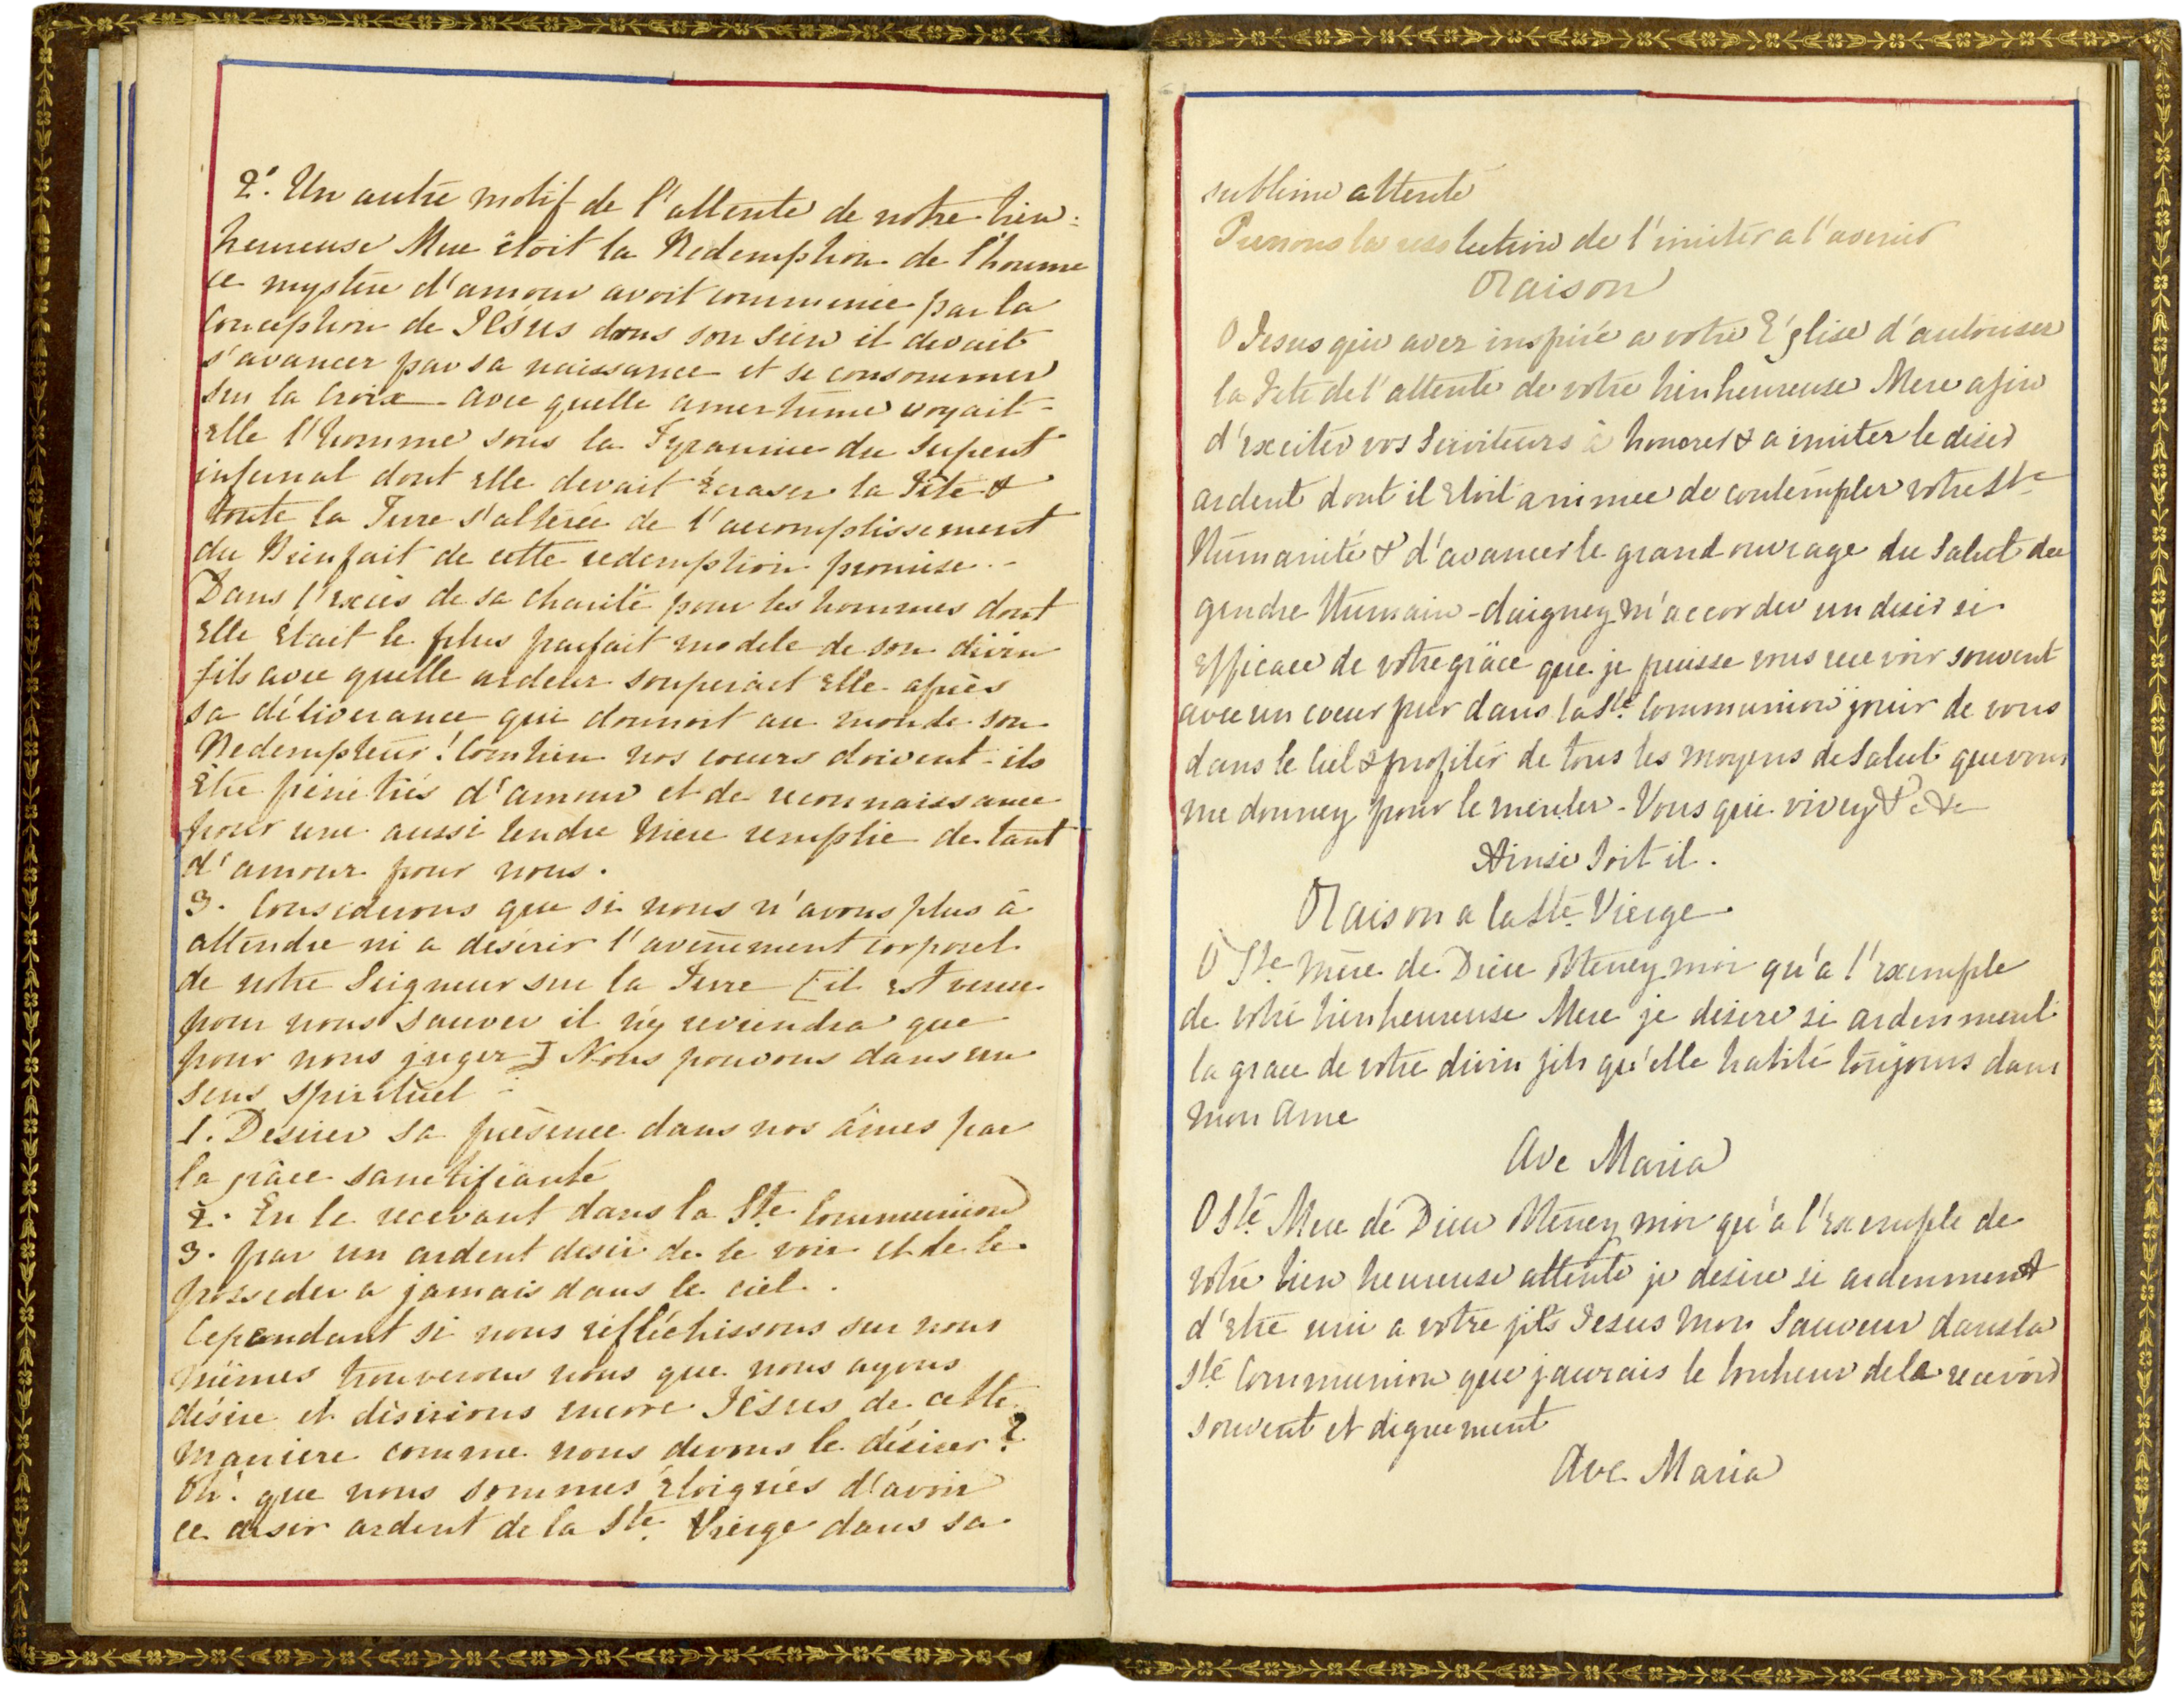 2°. Un autre motif de l'attente de notre bien=
heureuse Mere étoit la Redemption de l'homme
ce mystère d'amour avoit commencé par la
Conception de Jésus dans son sein il devait
s'avancer par sa naissance et se consommer
sur la Croix - Avec quelle amertume voyait-
elle l'homme sous la Tyrannie du Serpent
infernal dont elle devait écraser la Tête &
toute la Terre s'altérée de l'accomplissement
du Bienfait de cette redemption promise -
Dans l'excès de sa charité pour les hommes dont
elle était le plus parfait modele de son divin
fils avec quelle ardeur soupirait elle après
sa délivrance qui donnoit au monde son
Redempteur! Combien nos coeurs doivent-ils
être pénétrés d'amour et de reconnaissance
pour une aussi tendre Mère remplie de tant
d'amour pour nous.
3. Considerons que si nous n'avons plus à
attendre ni a désirer l'avènement corporel
de notre Seigneur sur la Terre [il est venu
pour nous sauver il n'y reviendra que
pour nous juger] Nous pouvons dans un
sens spirituel -
1. Desirer sa présence dans nos âmes par
la grâce sanctifiante
2. En le recevant dans la Ste. Communion
3. par un ardent desir de le voir et de le
posseder a jamais dans le ciel.
Cependant si nous réfléchissons sur nous
mêmes trouverons nous que nous ayons
désiré et désirions encore Jésus de cette
maniere comme nous devons le désirer?
Oh! que nous sommes éloignés d'avoir
ce desir ardent de la Ste. Vierge dans sa
sublime attente
Prenons la resolution de l'imiter a l'avenir
Oraison
O Jesus qui avez inspiré a votre Église d'autoriser
la Fete de l'attente de votre bienheureuse Mere afin
d'exciter vos Serviteurs à honorer & a imiter le desir
ardent dont il etoit animee de contempler votre Ste
Humanité & d'avancer le grand ouvrage du Salut du
gendre Humain - daigney m'accorder un desir si
efficace de votre grâce que je puisse vous recevoir souvent
avec un coeur pur dans la Ste. Communion jouir de vous
dans le Ciel & profiter de tous les moyens de Salut que vous
me donney pour le meriter - Vous qui vivey &c &c
Ainsi soit il.
Oraison a la Ste. Vierge
O Ste Mère de Dieu Obteney moi qu'a l'exemple
de votre bienheureuse Mere je desire si ardenment
la grace de votre divin fils qu'elle habite toujours dans
mon ame
Ave Maria
O Ste. Mere de Dieu Obteney moi qu'a l'exemple de
votre bien heureuse attente je desire si ardenment
d'être uni a votre fils Jesus mon Sauveur dans la
Ste Communion que jaurais le bonheur de la recevoir
souvent et dignement
Ave Maria